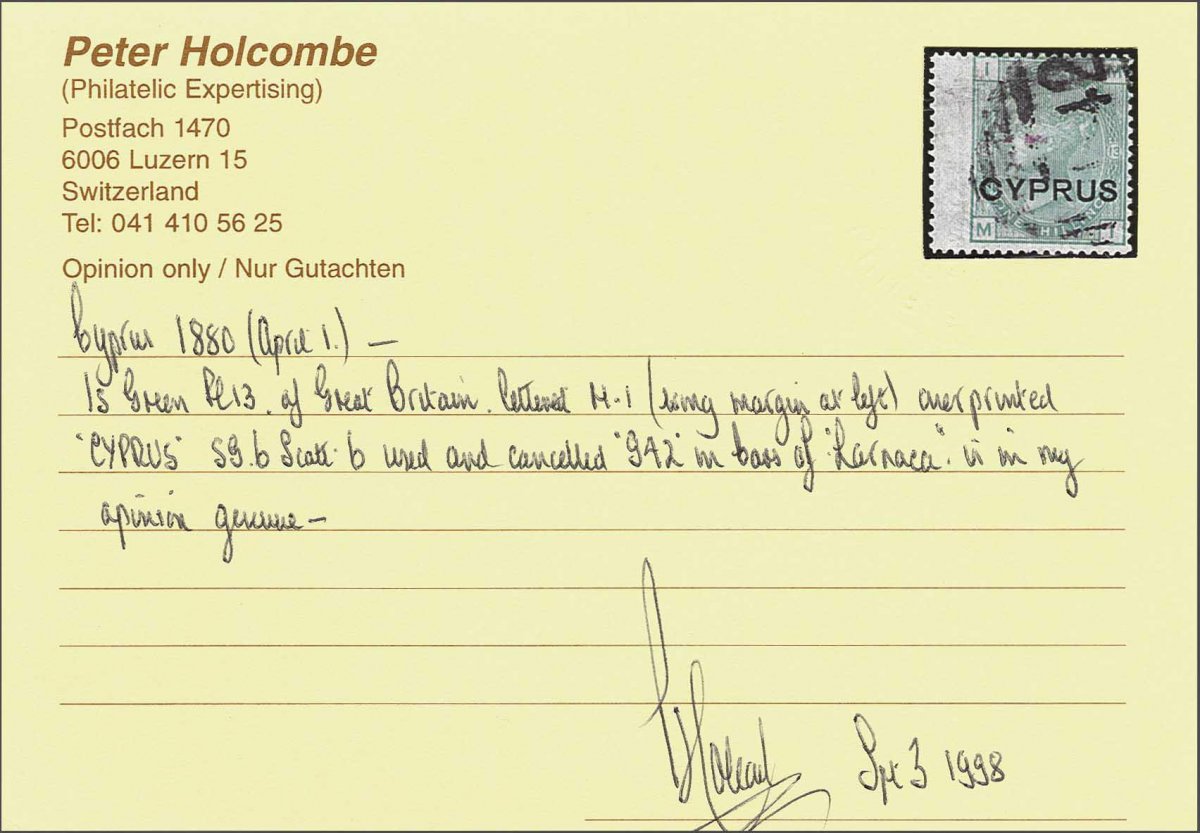 Peter Holcombe
(Philatelic Expertising)
Postfach 1470
6006 Luzern 15
Switzerland
Tel: 041 410 56 25
Opinion only / Nur Gutachten
CYPRUS
M I
Cyprus 1880 (April 1.) —
1s Green Pl 13. of Great Britain. lettered M-1 (wing margin at left) overprinted
"CYPRUS" SG.6 Scott 6 used and cancelled "942" in bars of "Larnaca" is in my
opinion genuine —
Spt 3 1998